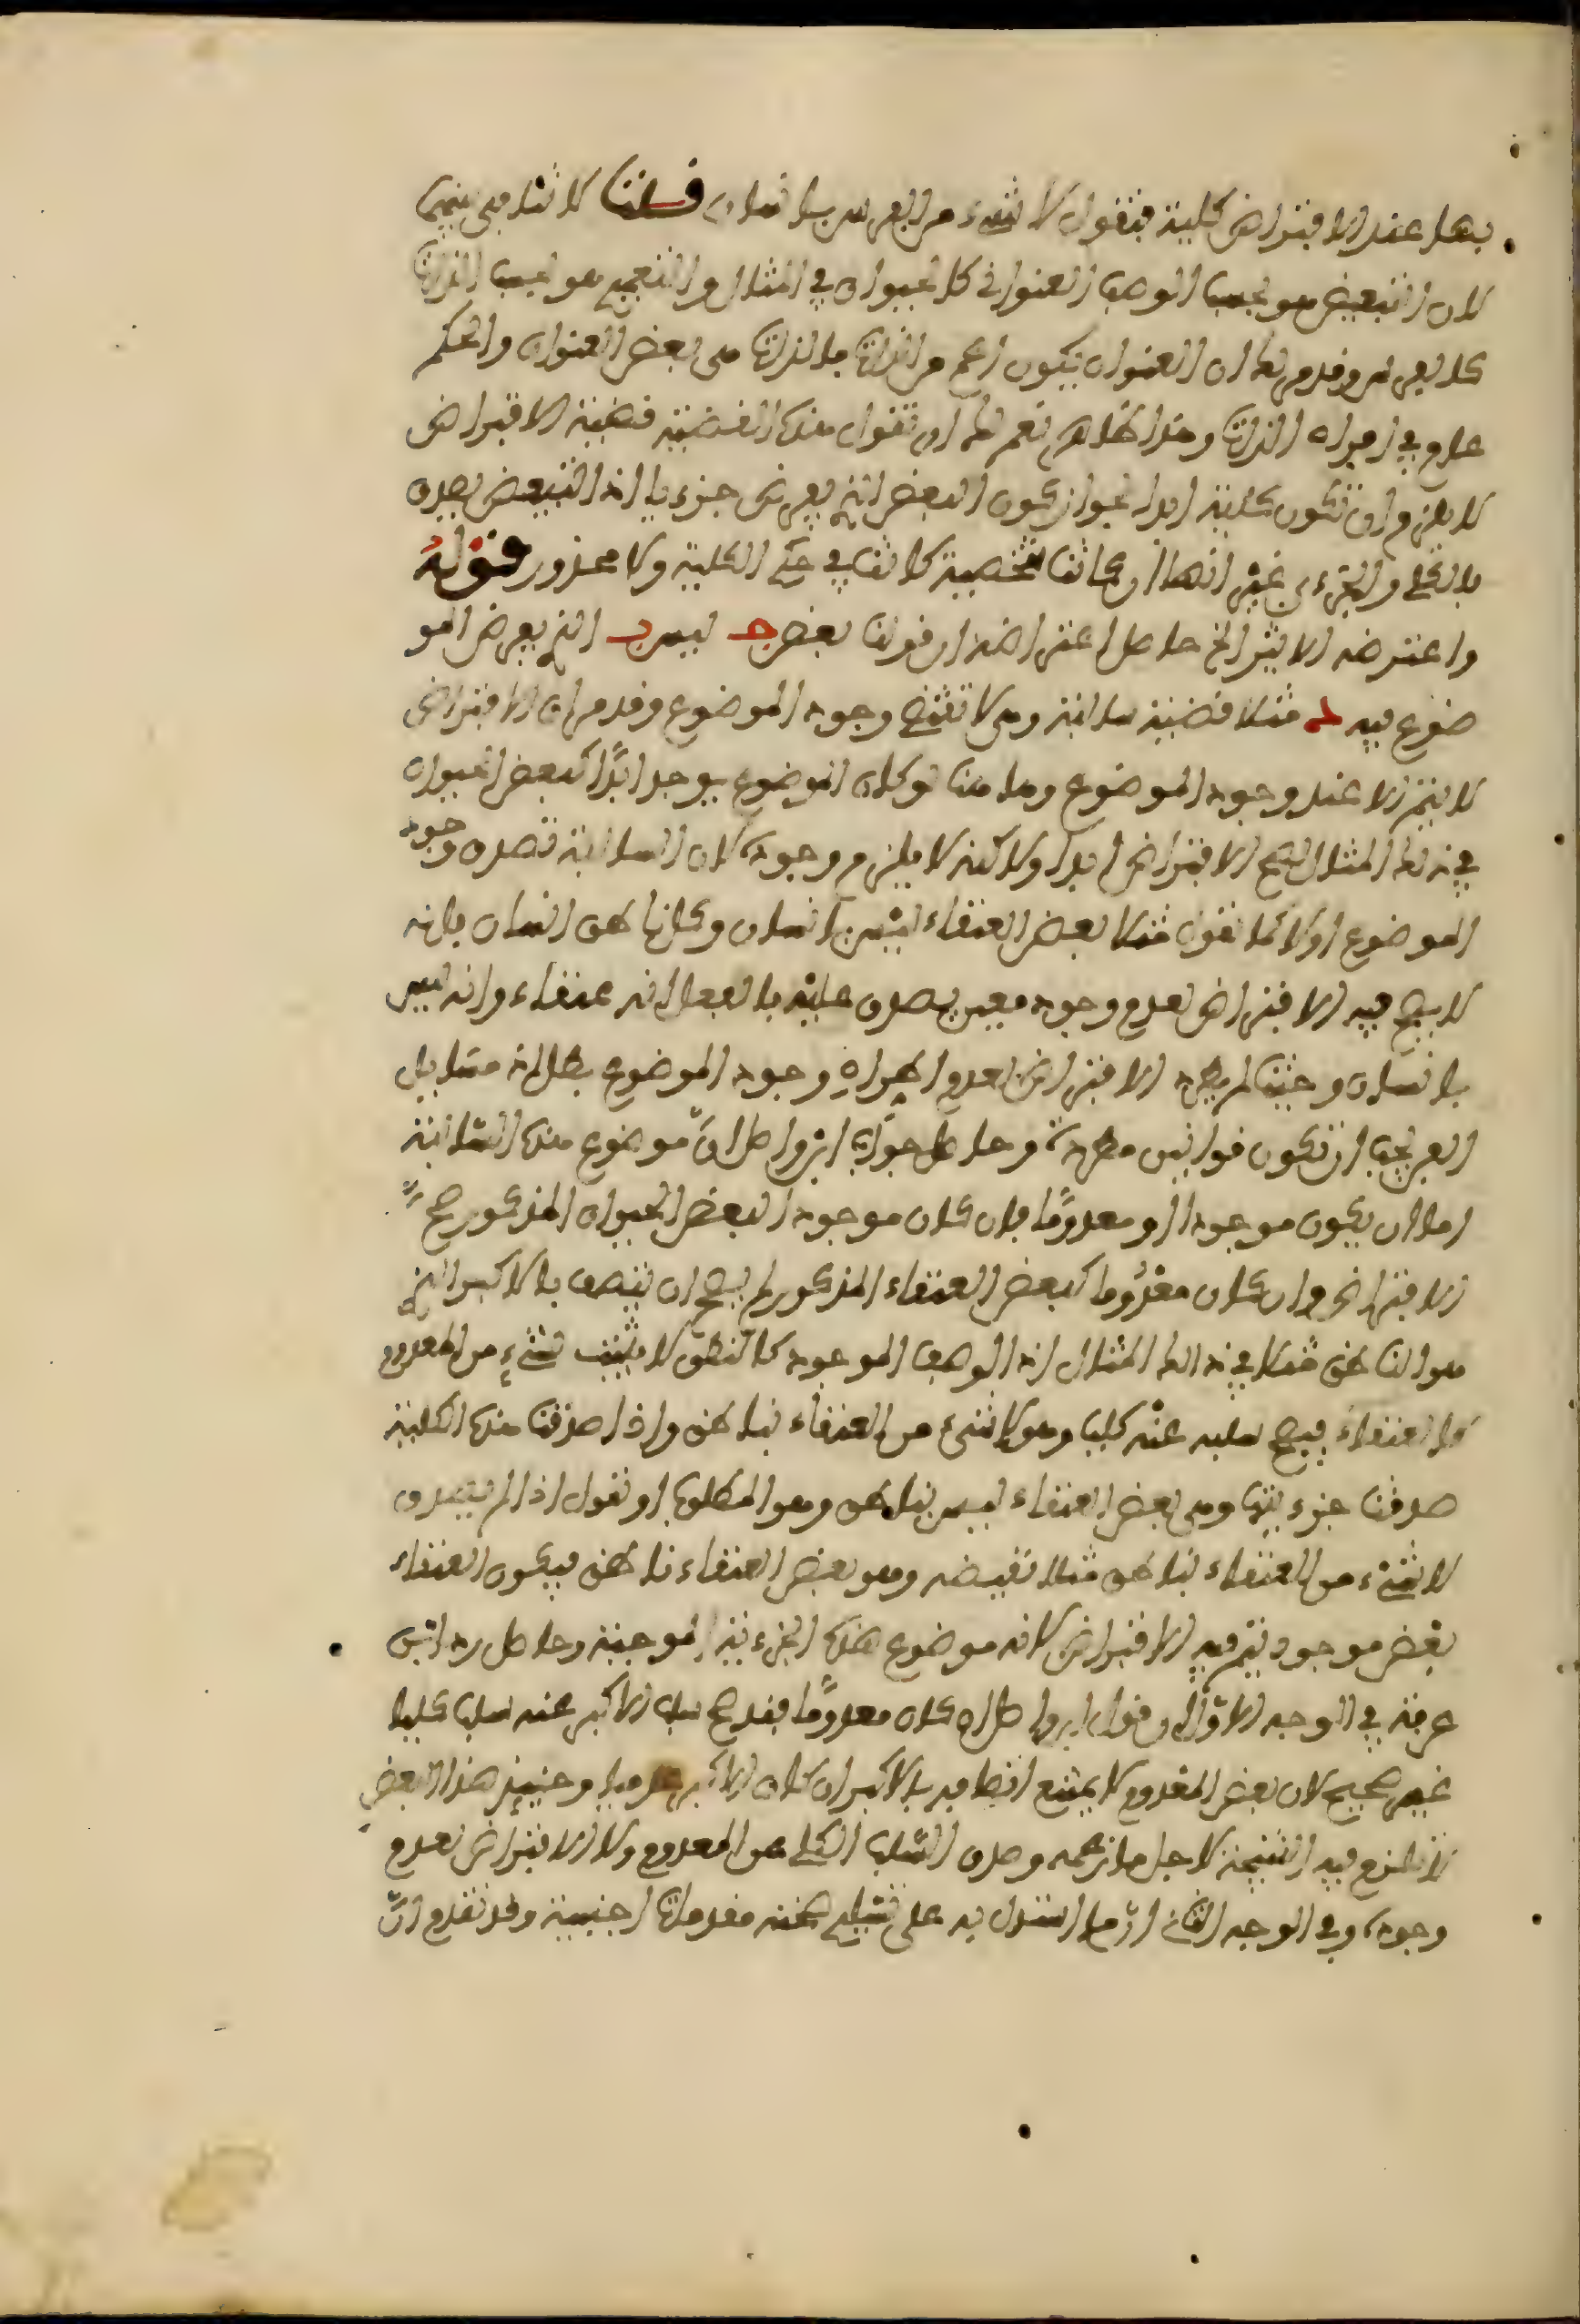 بها عند الافتراض كلية فتقول لا شيء من الفرس بانسان قلنا لا تنافي بينهما
لان التبعيض هو بحسب الوصف العنواني كالحيوان في المثال والتعميم هو بحسب الذات
كالفرس وقد مر لك ان العنوان يكون اعم من الذات فالذات هي بعض العنوان والحكم
عام في افراد الذات وهذا ظاهر نعم لك ان تقول هذه القضية قضية الافتراض
لا يلزم ان تكون كلية ابدا لجواز كون البعض الذي يفرض جزءيا اذ التبعيض يصدق
بالكلي والجزءي غير انها ان كانت شخصية كانت في حكم الكلية ولا محذور قوله
واعترضه الاثير الخ حاصل اعتراضه ان قولنا بعض ج ليس ب الذي يفرض المو
ضوع فيه د مثلا قضية سالبة وهي لا تقتضي وجود الموضوع وقد مر ان الافتراض
لا يتم الا عند وجود الموضوع وما هنا لو كان الموضوع يوجد ابدا كبعض الحيوان
في ذلك المثال لصح الافتراض ابدا ولاكنه لا يلزم وجوده لان السالبة تصدق وجد
الموضوع او لا كما تقول مثلا بعض العنقاء ليس بانسان وكل ناطق انسان فانه
لا يصح فيه الافتراض لعدم وجود معين يصدق عليه بالفعل انه عنقاء وانه ليس
بانسان وحيث لم يطرد الافتراض لعدم اطراد وجود الموضوع بطل اذ مسايل
الفن يجب ان تكون قوانين مطردة وحاصل جواب ابن واصل ان موضوع هذه السالبة
اما ان يكون موجودا او معدوما فان كان موجودا كبعض الحيوان المذكور صح
الافتراض وان كان معدوما كبعض العنقاء المذكور لم يصح ان يتصف بالاكبر الذي
هو الناطق مثلا في ذلك المثال اذ الوصف الموجود كالنطق لا يثبت لشيء من المعدوم
كالعنقاء فيصح سلبه عنه كليا وهو لا شيء من العنقاء بناطق واذا صدقت هذه الكلية
صدقت جزءيتها وهي بعض العنقاء ليس بناطق وهو المطلوب او تقول اذا لم يصدق
لا شيء من العنقاء بناطق مثلا نقيضه وهو بعض العنقاء ناطق فيكون العنقاء
بعض موجود يتم فيه الافتراض لانه موضوع هذه الجزءية الموجبة وحاصل رد ابن
عرفة في الوجه الاول ان قول ابن واصل ان كان معدوما فقد صح سلب الاكبر عنه سلبا كليا
غير صحيح لان بعض المعدوم لا يمتنع اتصافه بالاكبر ان كان الاكبر عدميا وحينئذ هذا البعض
لا تلزم فيه النتيجة لاجل ما زعمه وصدق السلب الكلي عن المعدوم ولا الافتراض لعدم
وجوده وفي الوجه الثاني ان ما استدل به على تسليم صحته مقدمات اجنبية وقد تقدم ان